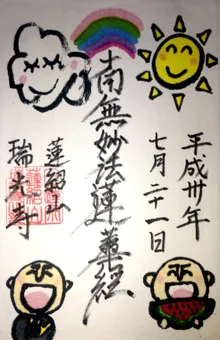 平成卅年
七月二十一日
南無妙法蓮華経
蓮紹山
瑞光寺